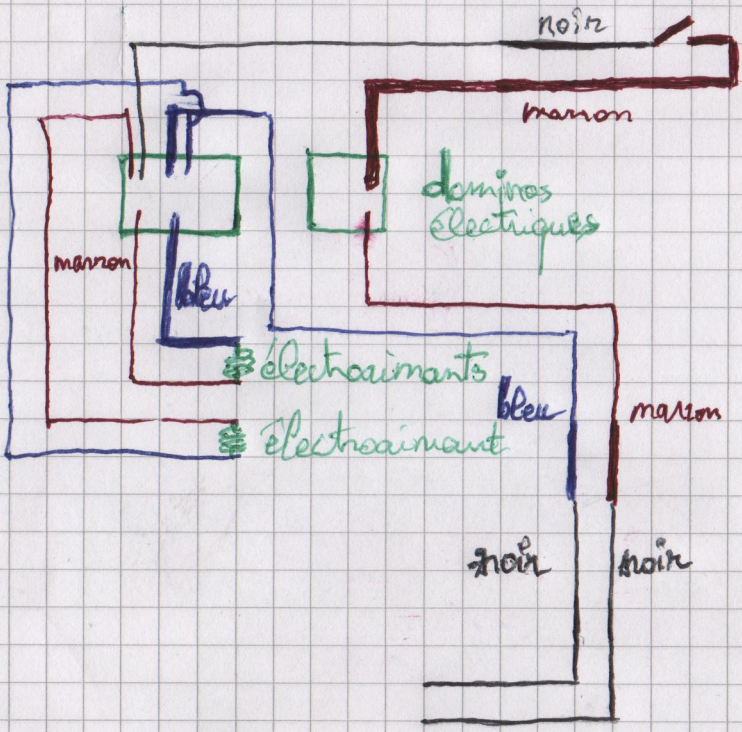 noir
marron
dominos
électriques
marron
bleu
électroaimants
bleu
marron
électroaimant
noir
noir